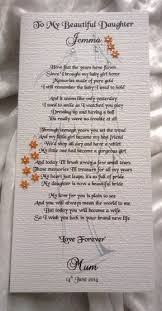 To My Beautiful Daughter
Jemma
How fast the years have flown
Since I brought my baby girl home
Memories made of pure gold
I still remember the baby I used to hold
And it seems like only yesterday
I used to smile as I watched you play
You grew to dancing and having a ball
You really were no trouble at all
Through teenage years you set the trend
And my little girl became my best friend
We'd shop all day and have a natter
My little girl has become so glamorous
And today I'll brush away a few small tears
Those memories I'll treasure for all my years
My heart just leaps, it's so full of pride
My daughter is now a beautiful bride
You will always mean the world to me
But today you will become a wife
So I wish you luck in your brand new life
Love Forever
Mum
14th June 2014